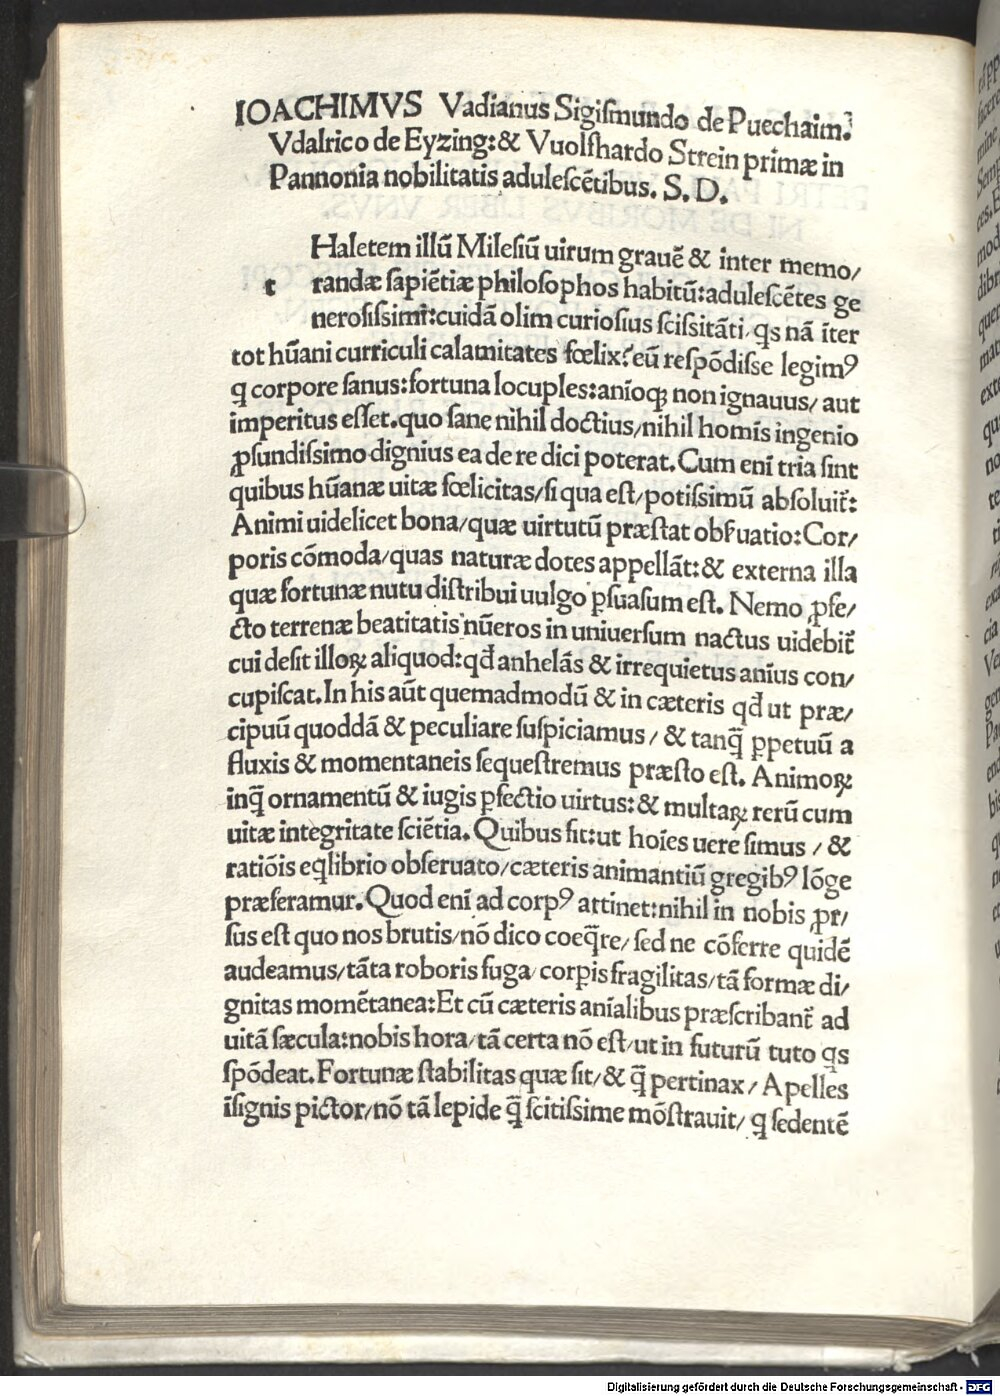 IOACHIMVS Vadianus Sigiſmundo de Puechaim:
Vdalrico de Eyzing:& Vuolfhardo Strein primæ in
Pannonia nobilitatis aduleſcētibus. S. D.
Haletem illū Mileſiū uirum grauē & inter memo/
t randæ ſapiētiæ philoſophos habitū:aduleſcētes ge
neroſiſſimi:cuidā olim curioſius ſciſsitāti, qs nā īter
tot hūani curriculi calamitates fœlix? eū reſpōdiſse legimꝰ
ꝙ corpore ſanus:fortuna locuples:anīoqꝫ non ignauus/ aut
imperitus eſſet. quo ſane nihil doctius/nihil homīs ingenio
ꝓfundiſſimo dignius ea de re dici poterat. Cum enī tria ſint
quibus hūanæ uitæ fœlicitas/ſi qua eſt/potiſſimū abſoluit̃:
Animi uidelicet bona/quæ uirtutū præſtat obſ̃uatio:Cor/
poris cōmoda/quas naturæ dotes appellāt:& externa illa
quæ fortunæ nutu diſtribui uulgo ꝑſuaſum eſt. Nemo ꝓfe/
cto terrenæ beatitatis nūeros in uniuerſum nactus uidebit̃
cui deſit illoꝝ aliquod:qd̃ anhelās & irrequietus anīus con/
cupiſcat. In his aūt quemadmodū & in cæteris qd̃ ut præ/
cipuū quoddā & peculiare ſuſpiciamus / & tanq̄ ꝑpetuū a
fluxis & momentaneis ſequeſtremus præſto eſt. Animoꝝ
inq̄ ornamentū & iugis ꝑfectio uirtus:& multaꝝ rerū cum
uitæ integritate ſciētia. Quibus fit:ut hoīes uere ſimus / &
ratiōis eq̄librio obſeruato/cæteris animantiū gregibꝰ lōge
præferamur. Quod enī ad corpꝰ attinet:nihil in nobis ꝓr/
ſus eſt quo nos brutis/nō dico coeq̄re/ ſed ne cōferre quidē
audeamus/tāta roboris fuga/ corꝑis fragilitas/tā formæ di/
gnitas momētanea:Et cū cæteris anīalibus præſcribant̃ ad
uitā ſæcula:nobis hora/tā certa nō eſt/ut in futurū tuto qs
ſpōdeat. Fortunæ ſtabilitas quæ ſit/ & q̄ pertinax/ Apelles
īſignis pictor/nō tā lepide q̄ ſcitiſſime mōſtrauit/ ꝙ ſedentē
Digitalisierung gefördert durch die Deutsche Forschungsgemeinschaft - DFG